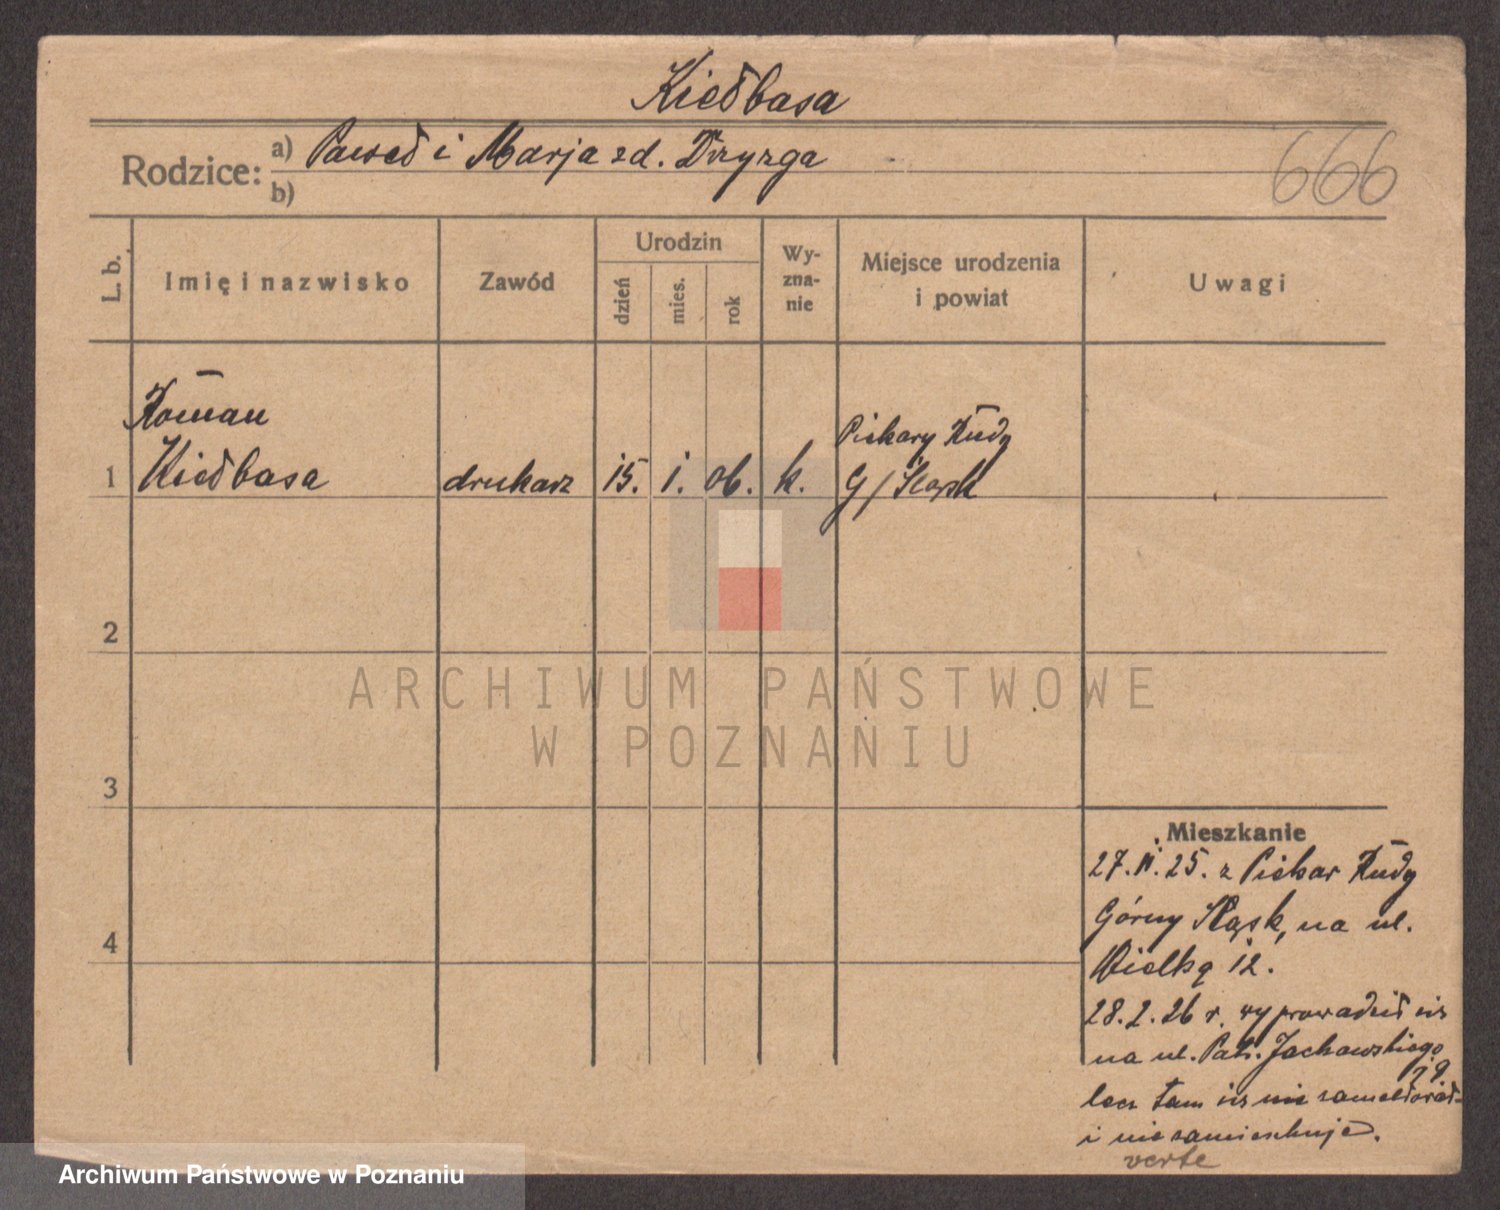 Kiełbasa
Rodzice: a) Paweł i Marja zd. Dzyzga
b)
666
L. b.
Imię i nazwisko
Zawód
Urodzin
dzień
mies.
rok
Wy-
zna-
nie
Miejsce urodzenia
i powiat
Uwagi
Roman
1 Kiełbasa drukarz 15. 1. 06. k.
Piekary Rudy
G/Śląsk
2
3
4
Mieszkanie
27. 25. z Piekar Rudy
Górny Śląsk, na ul.
Wielką 12.
28.2.26 r. wyprowadził się
na ul. Jackowskiego
29
lecz tam się nie zameldował
i nie zamieszkuje.
verte
ARCHIWUM PAŃSTWOWE
W POZNANIU
Archiwum Państwowe w Poznaniu